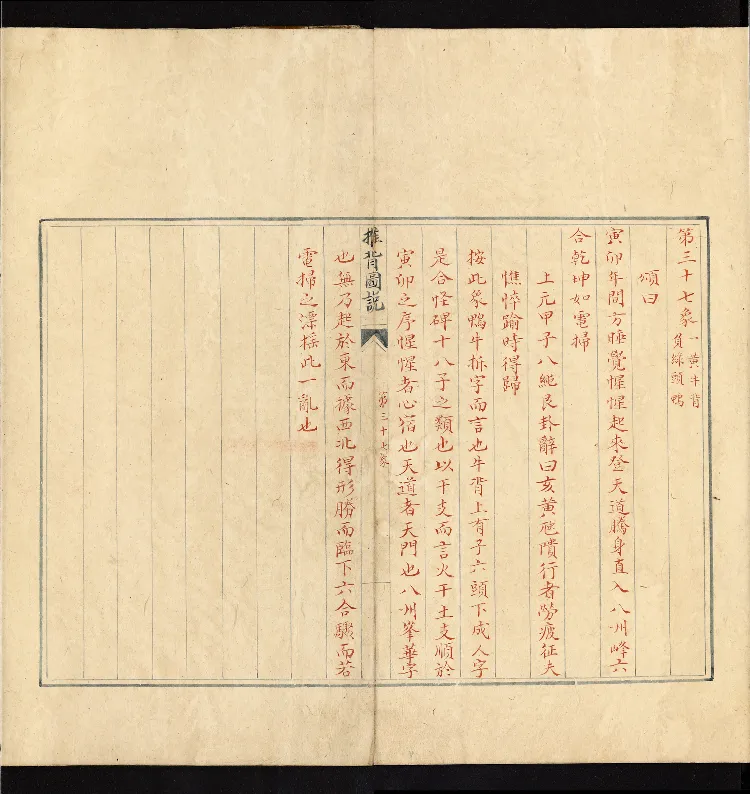 第三十七象 一黄牛背
負綠頭鴨
頌曰
寅卯年間方睡覺惺惺起來登天道騰身直入八州峰六
合乾坤如電掃
上元甲子八純艮卦辭曰亥黄虺隤行者勞疲征夫
憔悴踰時得歸
按此象鴨牛拆字而言也牛背上有子六頭下成人字
是合怪碑十八子之類也以干支而言火干土支順於
寅卯之序惺惺者心宿也天道者天門也八州峯華字
推背圖説
第三十七象
也無乃起於東而據西北得形勝而臨下六合驟而若
電掃之漂摇此一亂也